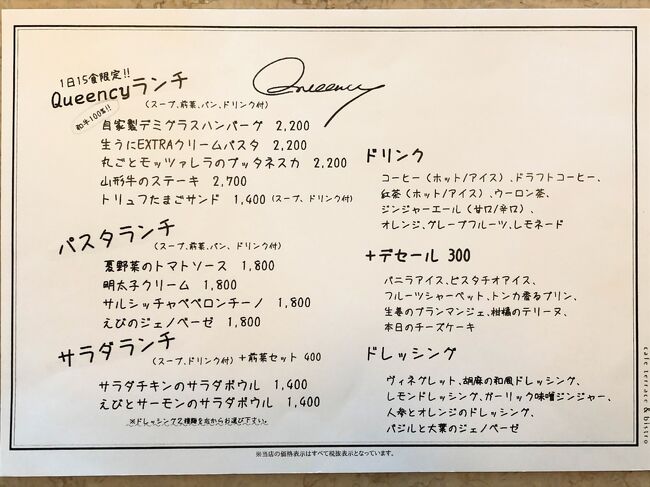 1日15食限定!!
Queencyランチ
(スープ、前菜、パン、ドリンク付)
和牛100%!!
自家製デミグラスハンバーグ 2,200
生うにEXTRAクリームパスタ 2,200
丸ごとモッツァレラのプッタネスカ 2,200
山形牛のステーキ 2,700
トリュフたまごサンド 1,400 (スープ、ドリンク付)
パスタランチ
(スープ、前菜、パン、ドリンク付)
夏野菜のトマトソース 1,800
明太子クリーム 1,800
サルシッチャペペロンチーノ 1,800
えびのジェノベーゼ 1,800
サラダランチ
(スープ、ドリンク付) +前菜セット 400
サラダチキンのサラダボウル 1,400
えびとサーモンのサラダボウル 1,400
※ドレッシング2種類を右からお選び下さい。
Queency
ドリンク
コーヒー(ホット/アイス)、ドラフトコーヒー、
紅茶(ホット/アイス)、ウーロン茶、
ジンジャーエール(甘口/辛口)、
オレンジ、グレープフルーツ、レモネード
+デセール 300
バニラアイス、ピスタチオアイス、
フルーツシャーベット、トンカ香るプリン、
生姜のブランマンジェ、柑橘のテリーヌ、
本日のチーズケーキ
ドレッシング
ヴィネグレット、胡麻の和風ドレッシング、
レモンドレッシング、ガーリック味噌ジンジャー、
人参とオレンジのドレッシング、
バジルと大葉のジェノベーゼ
cafe terrace & bistro
※当店の価格表示はすべて税抜表示となっています。